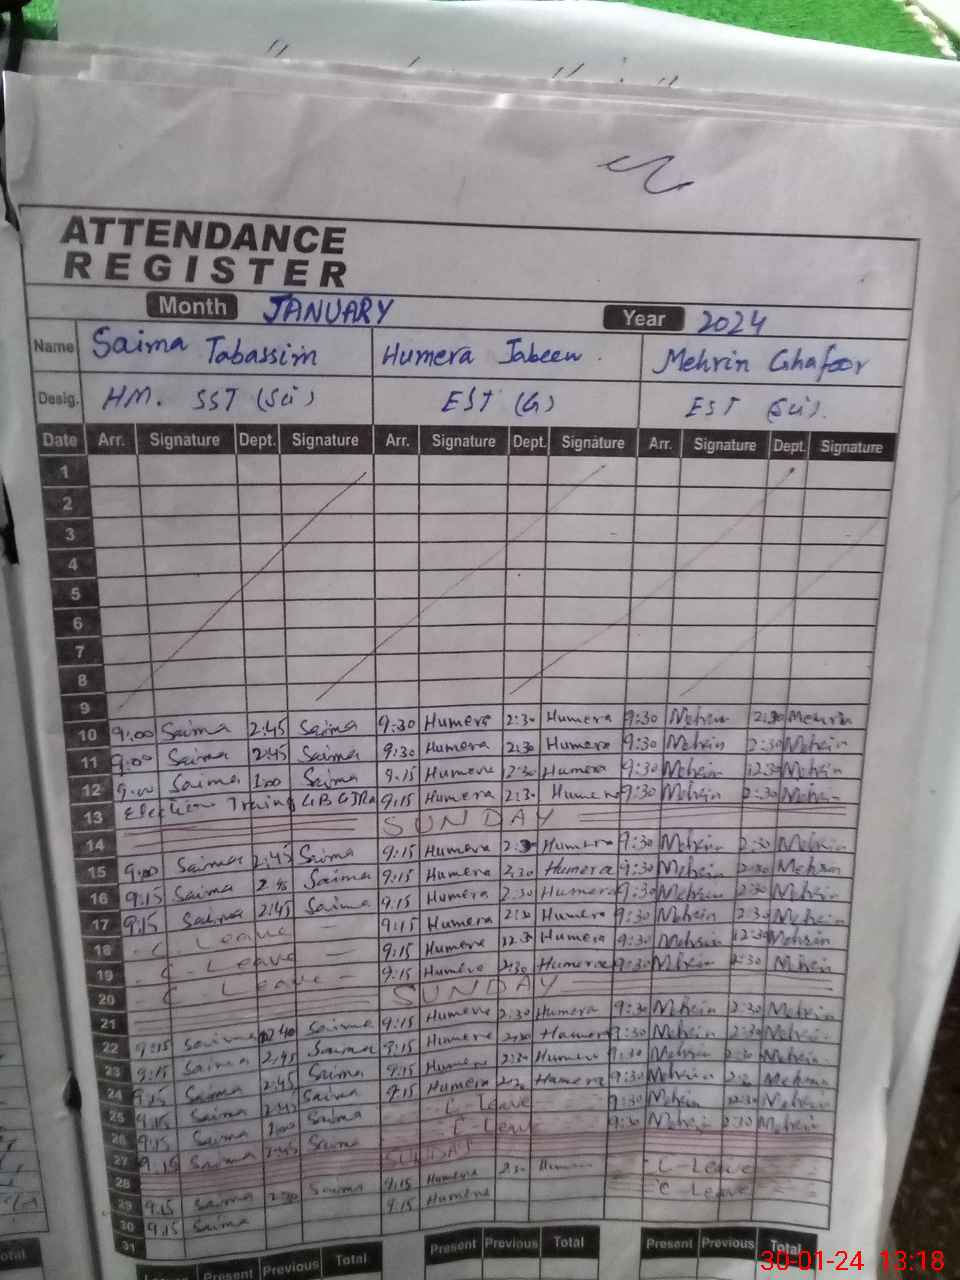 ATTENDANCE
REGISTER
Month JANUARY Year 2024
Name Saima Tabassim Humera Jabeen. Mehrin Ghafoor
Desig. HM. SST (Sci) EST (G) EST (Sci).
Date Arr. Signature Dept. Signature Arr. Signature Dept. Signature Arr. Signature Dept. Signature
1
2
3
4
5
6
7
8
9
10 9:00 Saima 2:45 Saima 9:30 Humera 2:30 Humera 9:30 Mehrin 2:30 Mehrin
11 9:00 Saima 2:45 Saima 9:30 Humera 2:30 Humera 9:30 Mehrin 2:30 Mehrin
12 9:00 Saima 1:00 Saima 9:15 Humera 2:30 Humera 9:30 Mehrin 12:30 Mehrin
13 Election Traing 9:15 Humera 2:30 Humera 9:30 Mehrin 2:30 Mehrin
14 SUNDAY
15 9:00 Saima 2:45 Saima 9:15 Humera 2:30 Humera 9:30 Mehrin 2:30 Mehrin
16 9:15 Saima 2:45 Saima 9:15 Humera 2:30 Humera 9:30 Mehrin 2:30 Mehrin
17 9:15 Saima 2:45 Saima 9:15 Humera 2:30 Humera 9:30 Mehrin 2:30 Mehrin
18 - C. Leave - 9:15 Humera 2:30 Humera 9:30 Mehrin 2:30 Mehrin
19 - C. Leave - 9:15 Humera 12:30 Humera 9:30 Mehrin 12:30 Mehrin
20 - C. Leave - 9:15 Humera 2:30 Humera 9:30 Mehrin 2:30 Mehrin
21 SUNDAY
22 9:15 Saima 2:40 Saima 9:15 Humera 2:30 Humera 9:30 Mehrin 2:30 Mehrin
23 9:15 Saima 2:45 Saima 9:15 Humera 2:30 Humera 9:30 Mehrin 2:30 Mehrin
24 9:15 Saima 2:45 Saima 9:15 Humera 2:30 Humera 9:30 Mehrin 2:30 Mehrin
25 9:15 Saima 2:45 Saima 9:15 Humera 2:30 Humera 9:30 Mehrin 2:30 Mehrin
26 9:15 Saima 1:00 Saima C Leave 9:30 Mehrin 12:30 Mehrin
27 9:15 Saima 2:45 Saima C Leave 9:30 Mehrin 2:30 Mehrin
28 SUNDAY
29 9:15 Saima 2:30 Saima 9:15 Humera 2:30 Humera C-Leave
30 9:15 Saima 9:15 Humera C Leave
31
Present Previous Total Present Previous Total Present Previous Total
30-01-24 13:18